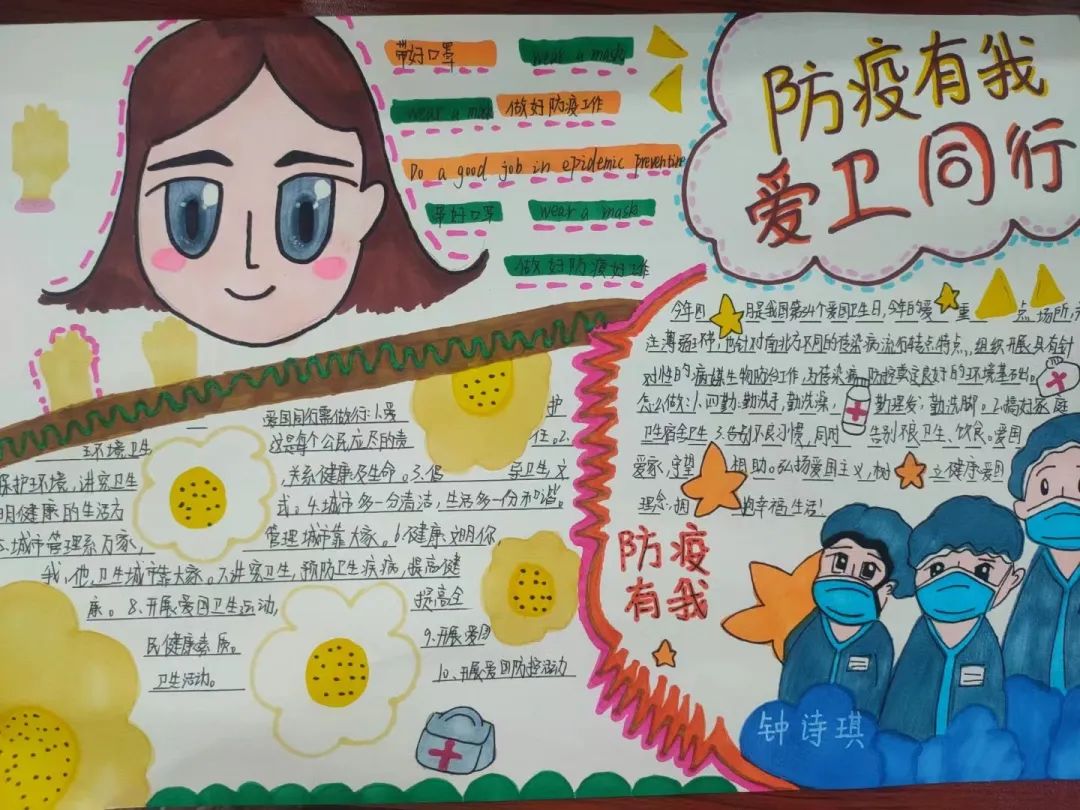 带好口罩
wear a mask
wear a mask
做好防疫工作
Do a good job in epidemic preventine
带好口罩
wear a mask
做好防疫好工作
防疫有我
爱卫同行
今年四 月是我国第34个爱国卫生日,今年的爱 重 点场所,
注薄弱环节,也针对南北方不同的传染病流行特点特点,组织开展具有针
对性的病媒生物防治工作,为传染病防控奠定良好的环境基础。
怎么做:1.四勤:勤洗手,勤洗澡, 勤理发,勤洗脚。2.搞好家庭
卫生宿舍卫生 3.告别不良习惯,同时 告别不良卫生、饮食。爱国
爱家,守望 相助。弘扬爱国主义,树 立健康爱国
理念,拥 抱幸福生活!
防疫
有我
爱国同行需做行:1.爱 护
环境卫生 这是每个公民应尽的责 任。2.
保护环境,讲究卫生 关系健康及生命。3.倡 导卫生文
明健康的生活方 式。4.城市多一分清洁,生活多一份和谐。
5.城市管理系万家, 管理城市靠大家。6.健康文明你
我,他,卫生城市靠大家。7.讲究卫生,预防卫生疾病,提高健
康。8.开展爱国卫生运动, 提高全
民健康素质。 9.开展爱国
卫生活动。 10、开展爱国防控活动
钟诗琪